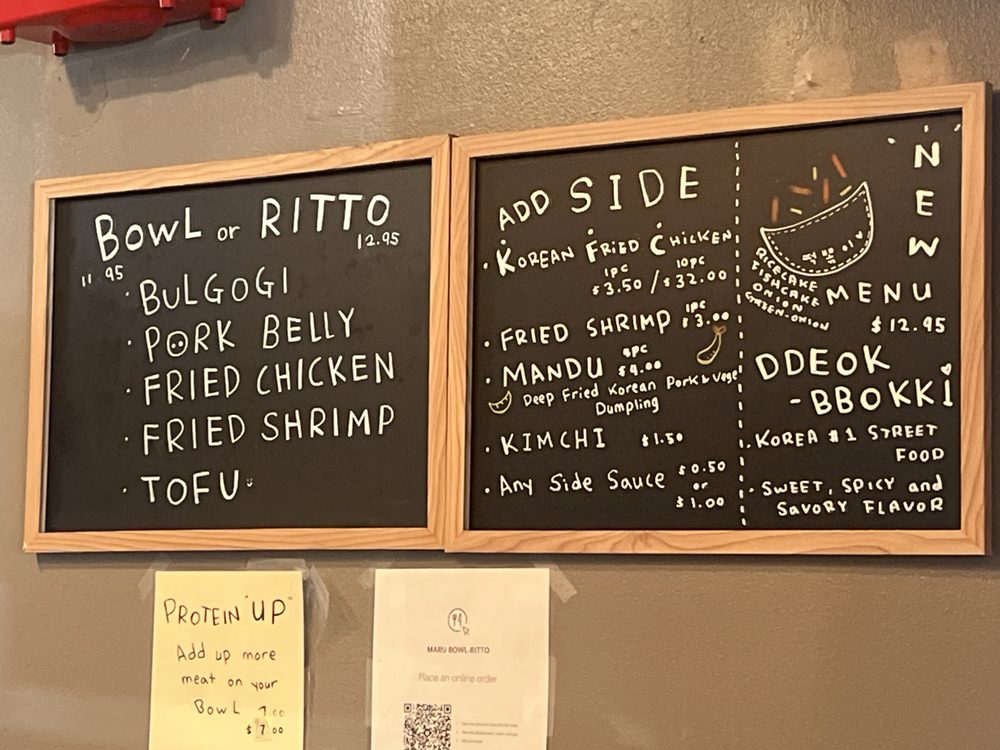 BOWL or RITTO
11.95
12.95
· BULGOGI
· PORK BELLY
· FRIED CHICKEN
· FRIED SHRIMP
· TOFU
ADD SIDE
· KOREAN FRIED CHICKEN
1PC 10PC
$3.50 / $32.00
· FRIED SHRIMP 1PC $3.00
· MANDU
Deep Fried Korean Pork & Vege
Dumpling
· KIMCHI $1.50
· Any Side Sauce $0.50
or
$1.00
NEW
떡볶이
RICECAKE
FISHCAKE
ONION
GREEN-ONION
MENU
$12.95
DDEOK
-BBOKKI
· KOREA #1 STREET
FOOD
· SWEET, SPICY and
SAVORY FLAVOR
PROTEIN "UP"
Add up more
meat on your
BOWL
$7.00
MARU BOWL-RITTO
Place an online order